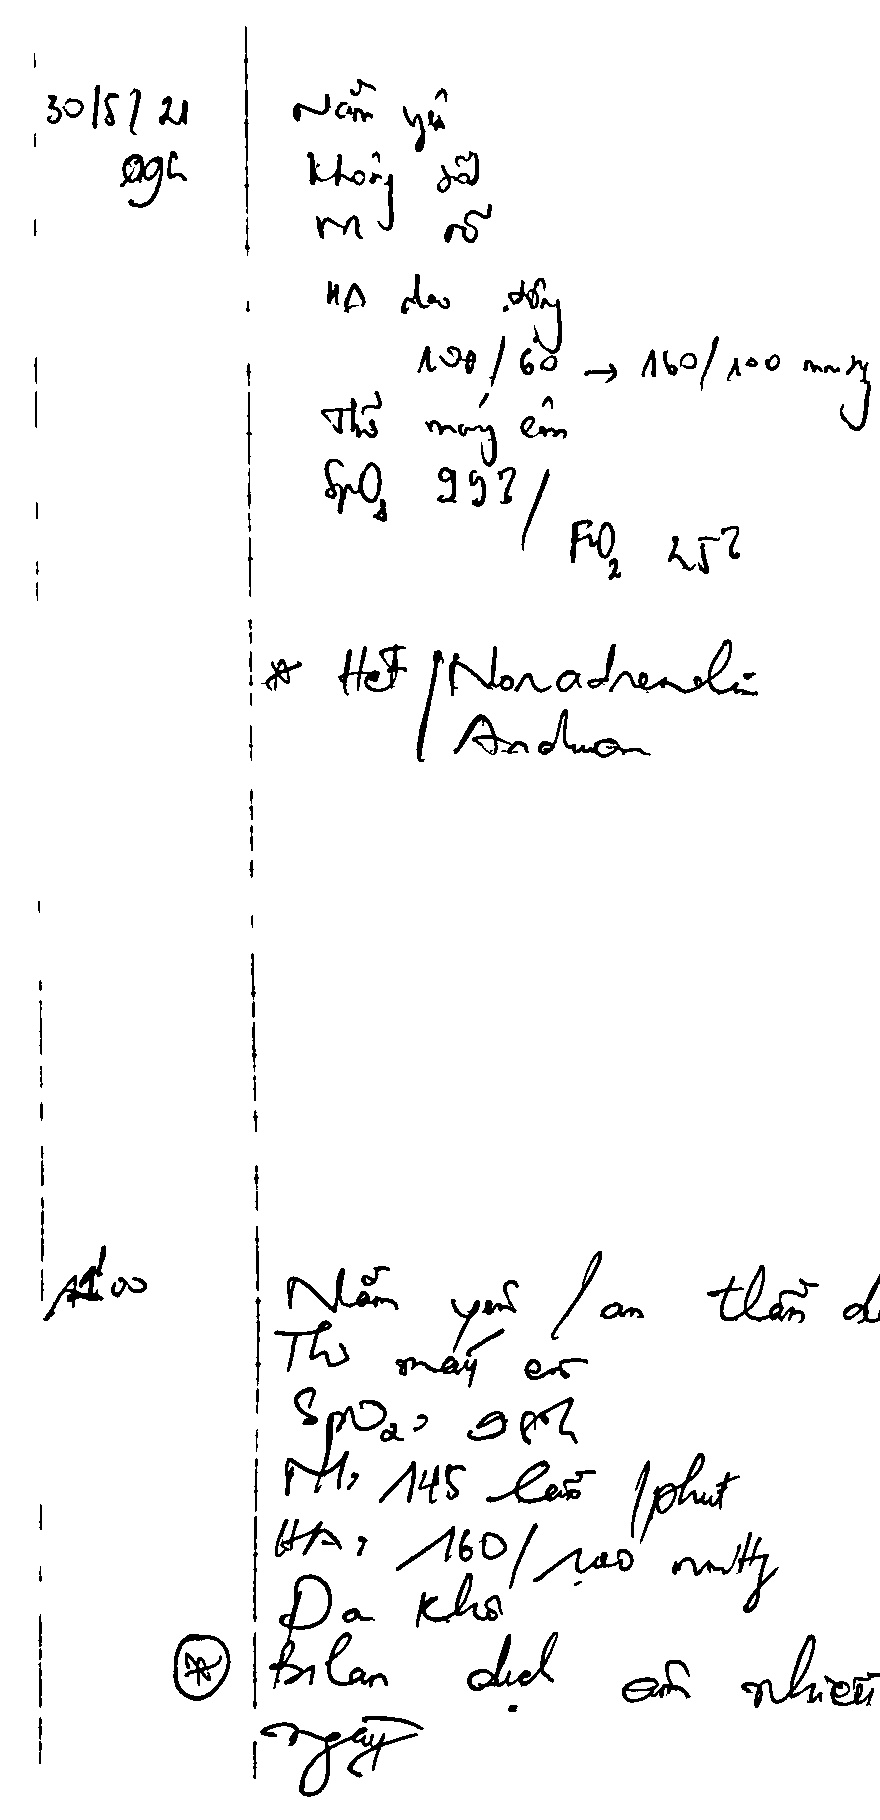 30/5/21 Nằm yên
09h Không sốt
M rõ
HA dao động
100/60 → 160/100 mmHg
Thở máy êm
SpO2 99%/
FiO2 25%
* HCT/Noradrenalin
Anduan
00 Nằm yên / an thần d
Thở máy êm
SpO2: 98%
M: 145 lần/phút
HA: 160/100 mmHg
Da khô
* Bilan dịch âm nhiều
ngày